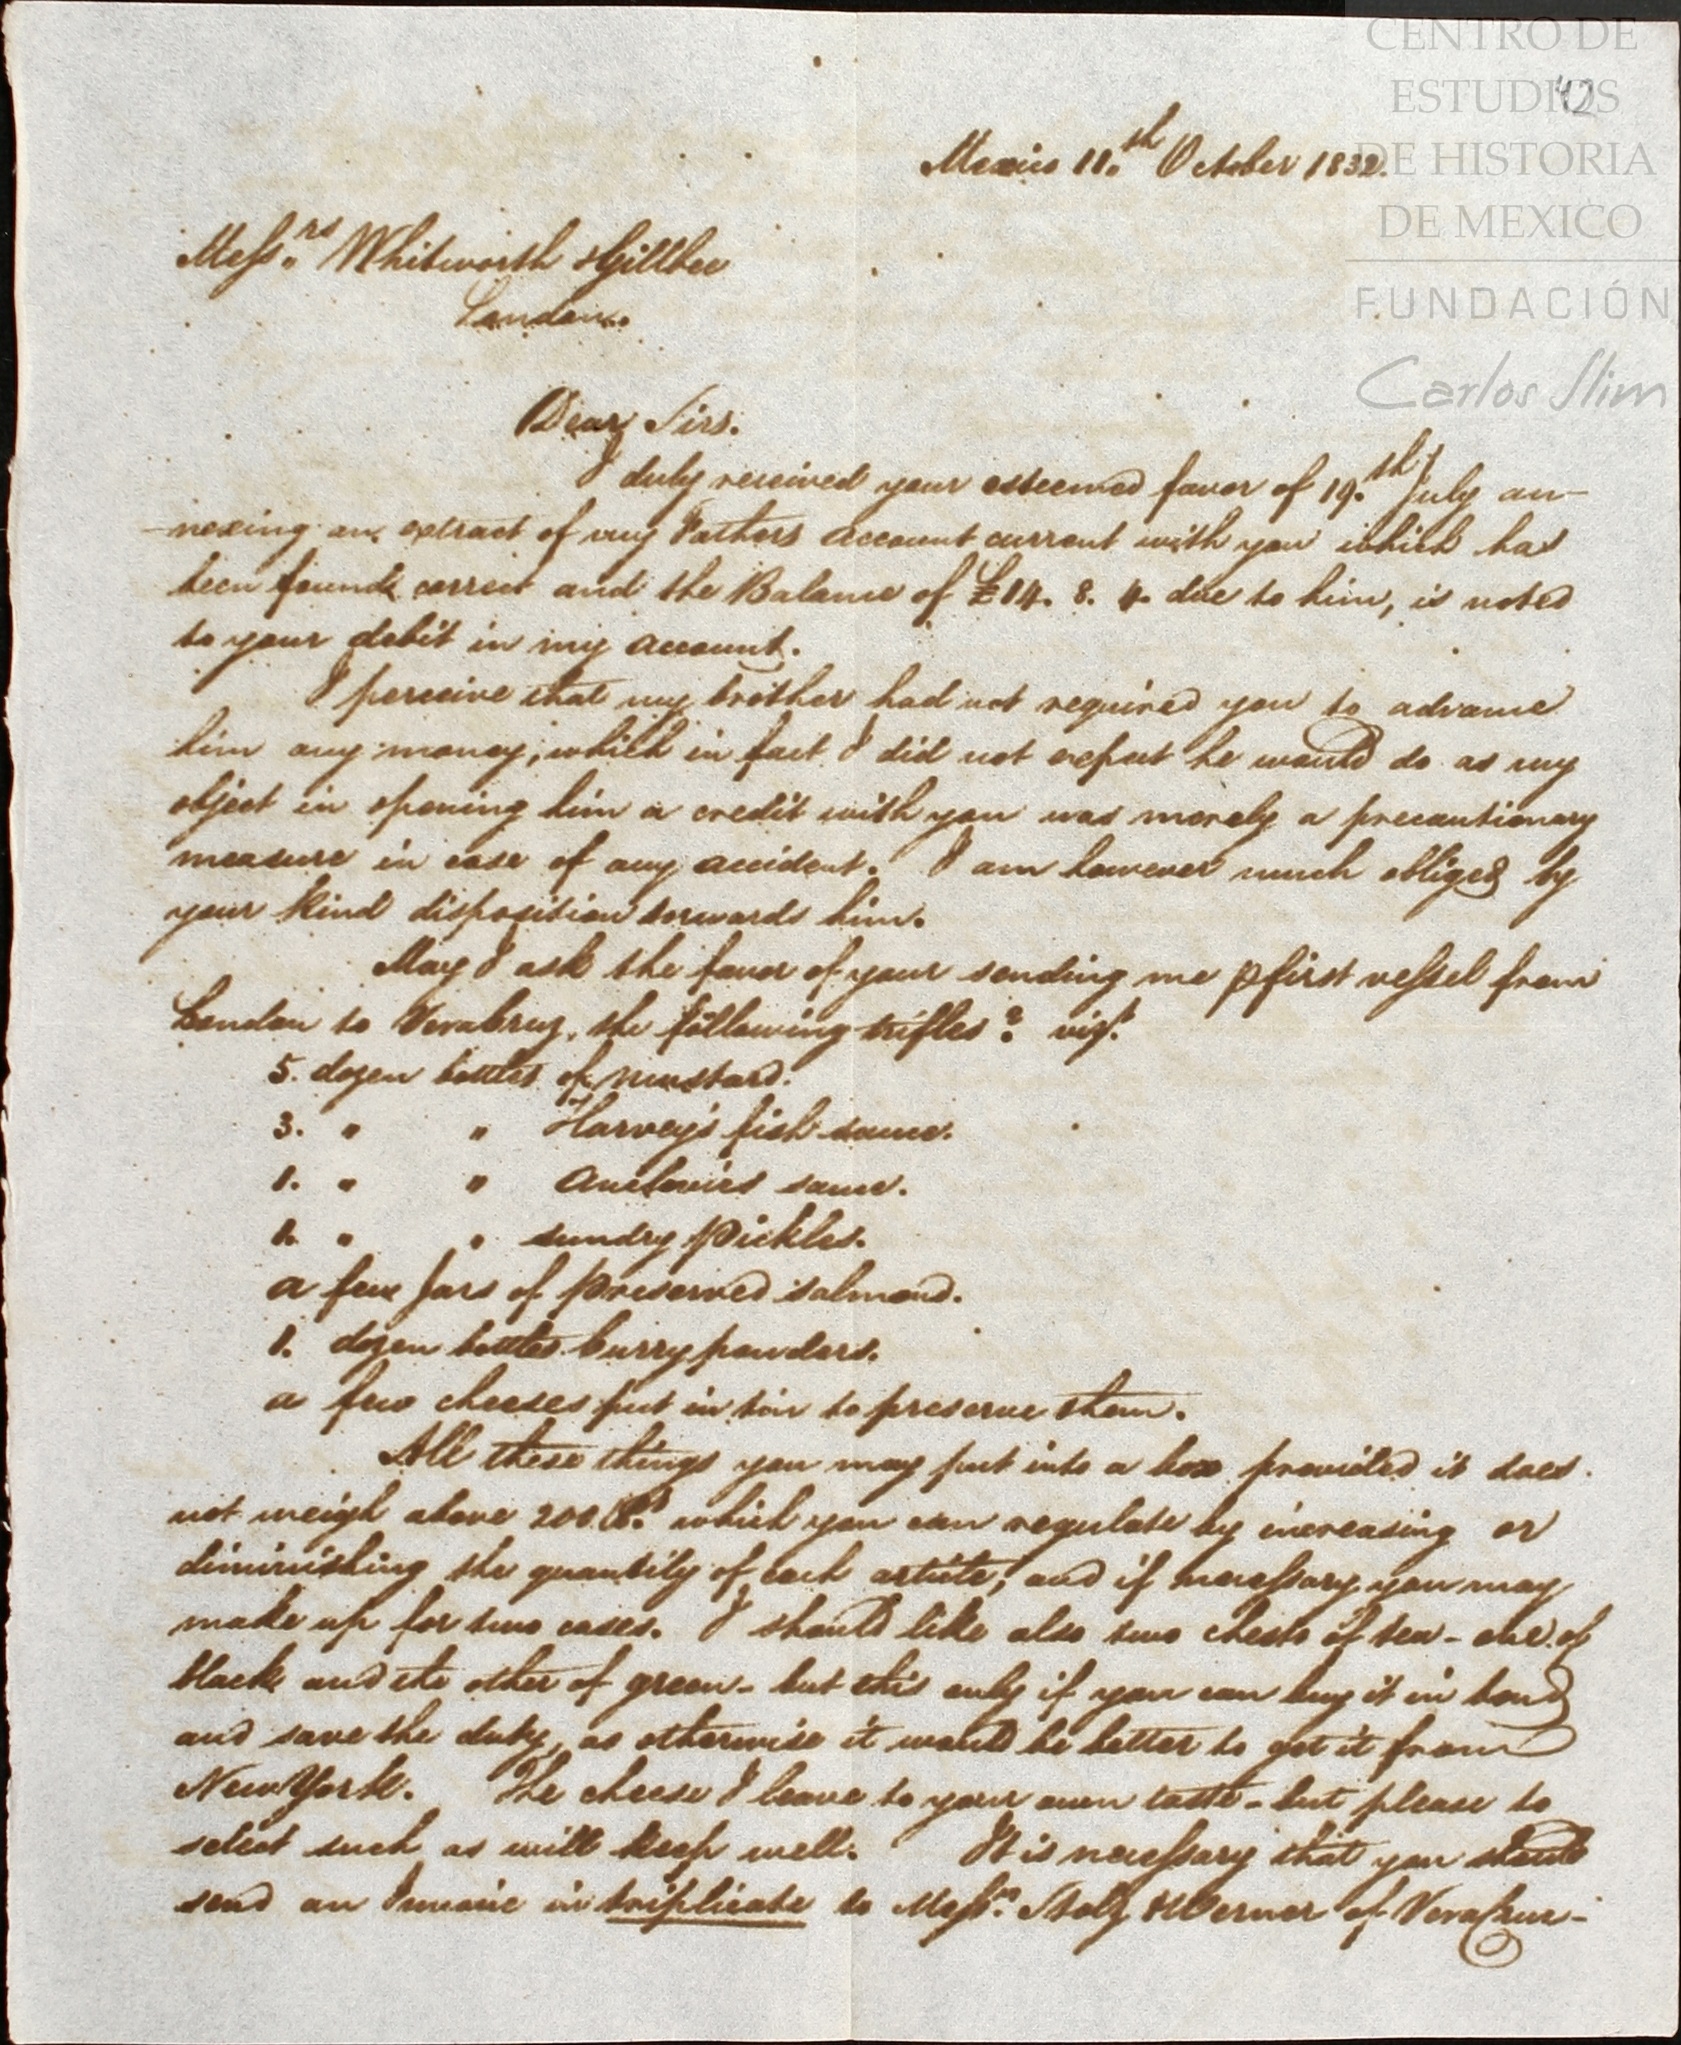 CENTRO DE
ESTUDIOS
DE HISTORIA
DE MEXICO
FUNDACIÓN
Carlos Slim
42
Mexico 11.th October 1832.
Messrs. Whitworth & Gillbee
London.
Dear Sirs.
I duly received your esteemed favor of 19.th July an-
nexing an extract of my Fathers account current with you which has
been found correct and the Balance of £14. 8. 4. due to him, is noted
to your debit in my account.
I perceive that my brother had not required you to advance
him any money, which in fact I did not expect he would do as my
object in opening him a credit with you was merely a precautionary
measure in case of any accident. I am however much obliged by
your kind disposition torwards him.
May I ask the favor of your sending me p first vessel from
London to Veracruz, the following trifles? vizt.
5. dozen bottles of mustard.
3. " " Harvey's fish sauce.
1. " " anchovies sauce.
1. " " sundry pickles.
a few Jars of preserved salmond.
1. dozen bottles Curry powders.
a few cheeses put in tin to preserve them.
All these things you may put into a box provided it does
not weigh above 200 lbs. which you can regulate by increasing or
diminishing the quantity of each article; and if necessary you may
make up for two cases. I should like also two chests of tea - one of
black and the other of green - but this only if you can buy it in bond
and save the duty, as otherwise it would be better to get it from
New York. The cheese I leave to your own taste - but please to
select such as will keep well. It is necessary that you should
send an Invoice in triplicate to Messrs. Stolz & Werner of VeraCruz -